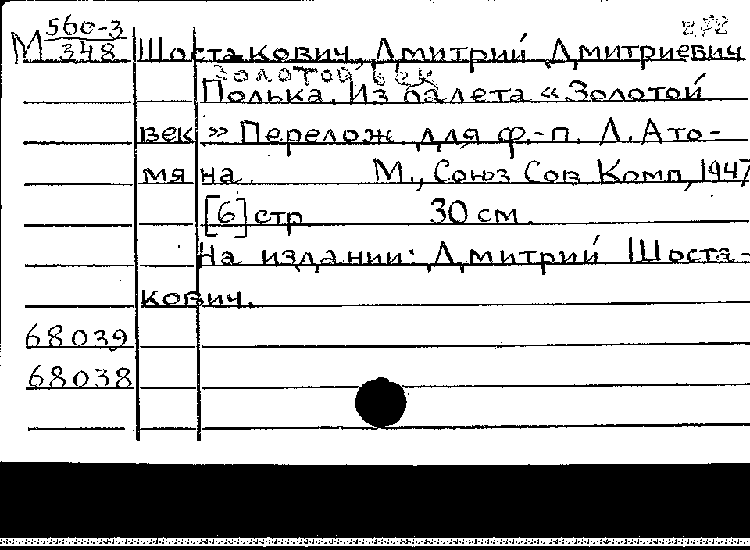 М 560-3
348
Шостакович, Дмитрий Дмитриевич
Золотой век
Полька. Из балета «Золотой
век» Перелож. для ф.-п. Л. Ато-
мяна. М., Союз Сов Комп, 1947
[6] стр 30 см.
На издании: Дмитрий Шоста-
кович.
68039
68038